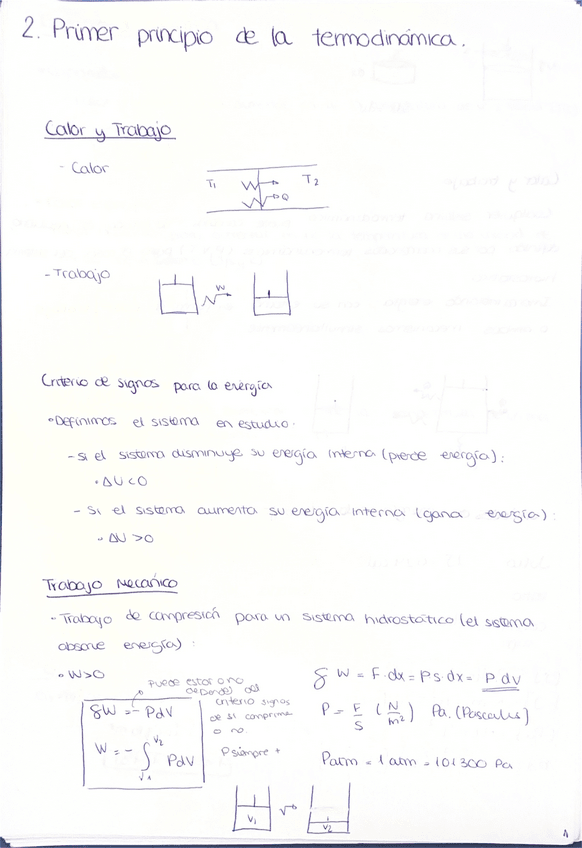 2. Primer principio de la termodinámica.
Calor y Trabajo
- Calor
T1 T2
Q
- Trabajo
W
Criterio de signos para la energía
• Definimos el sistema en estudio.
- si el sistema disminuye su energía interna (pierde energía):
• ΔU<0
- Si el sistema aumenta su energía interna (gana energía):
• ΔU >0
Trabajo Mecánico
- Trabajo de compresión para un sistema hidrostático (el sistema
absorve energía):
• W>0
Puede estar o no
depende del
criterio signos
de si comprime
o no.
P siempre +
δW = - PdV
W = - ∫ V1 V2 PdV
δ W = F·dx = P S·dx = P dV
P = F/S (N/m²) Pa. (Pascales)
Patm = 1 atm = 101300 Pa
V1 V2
1